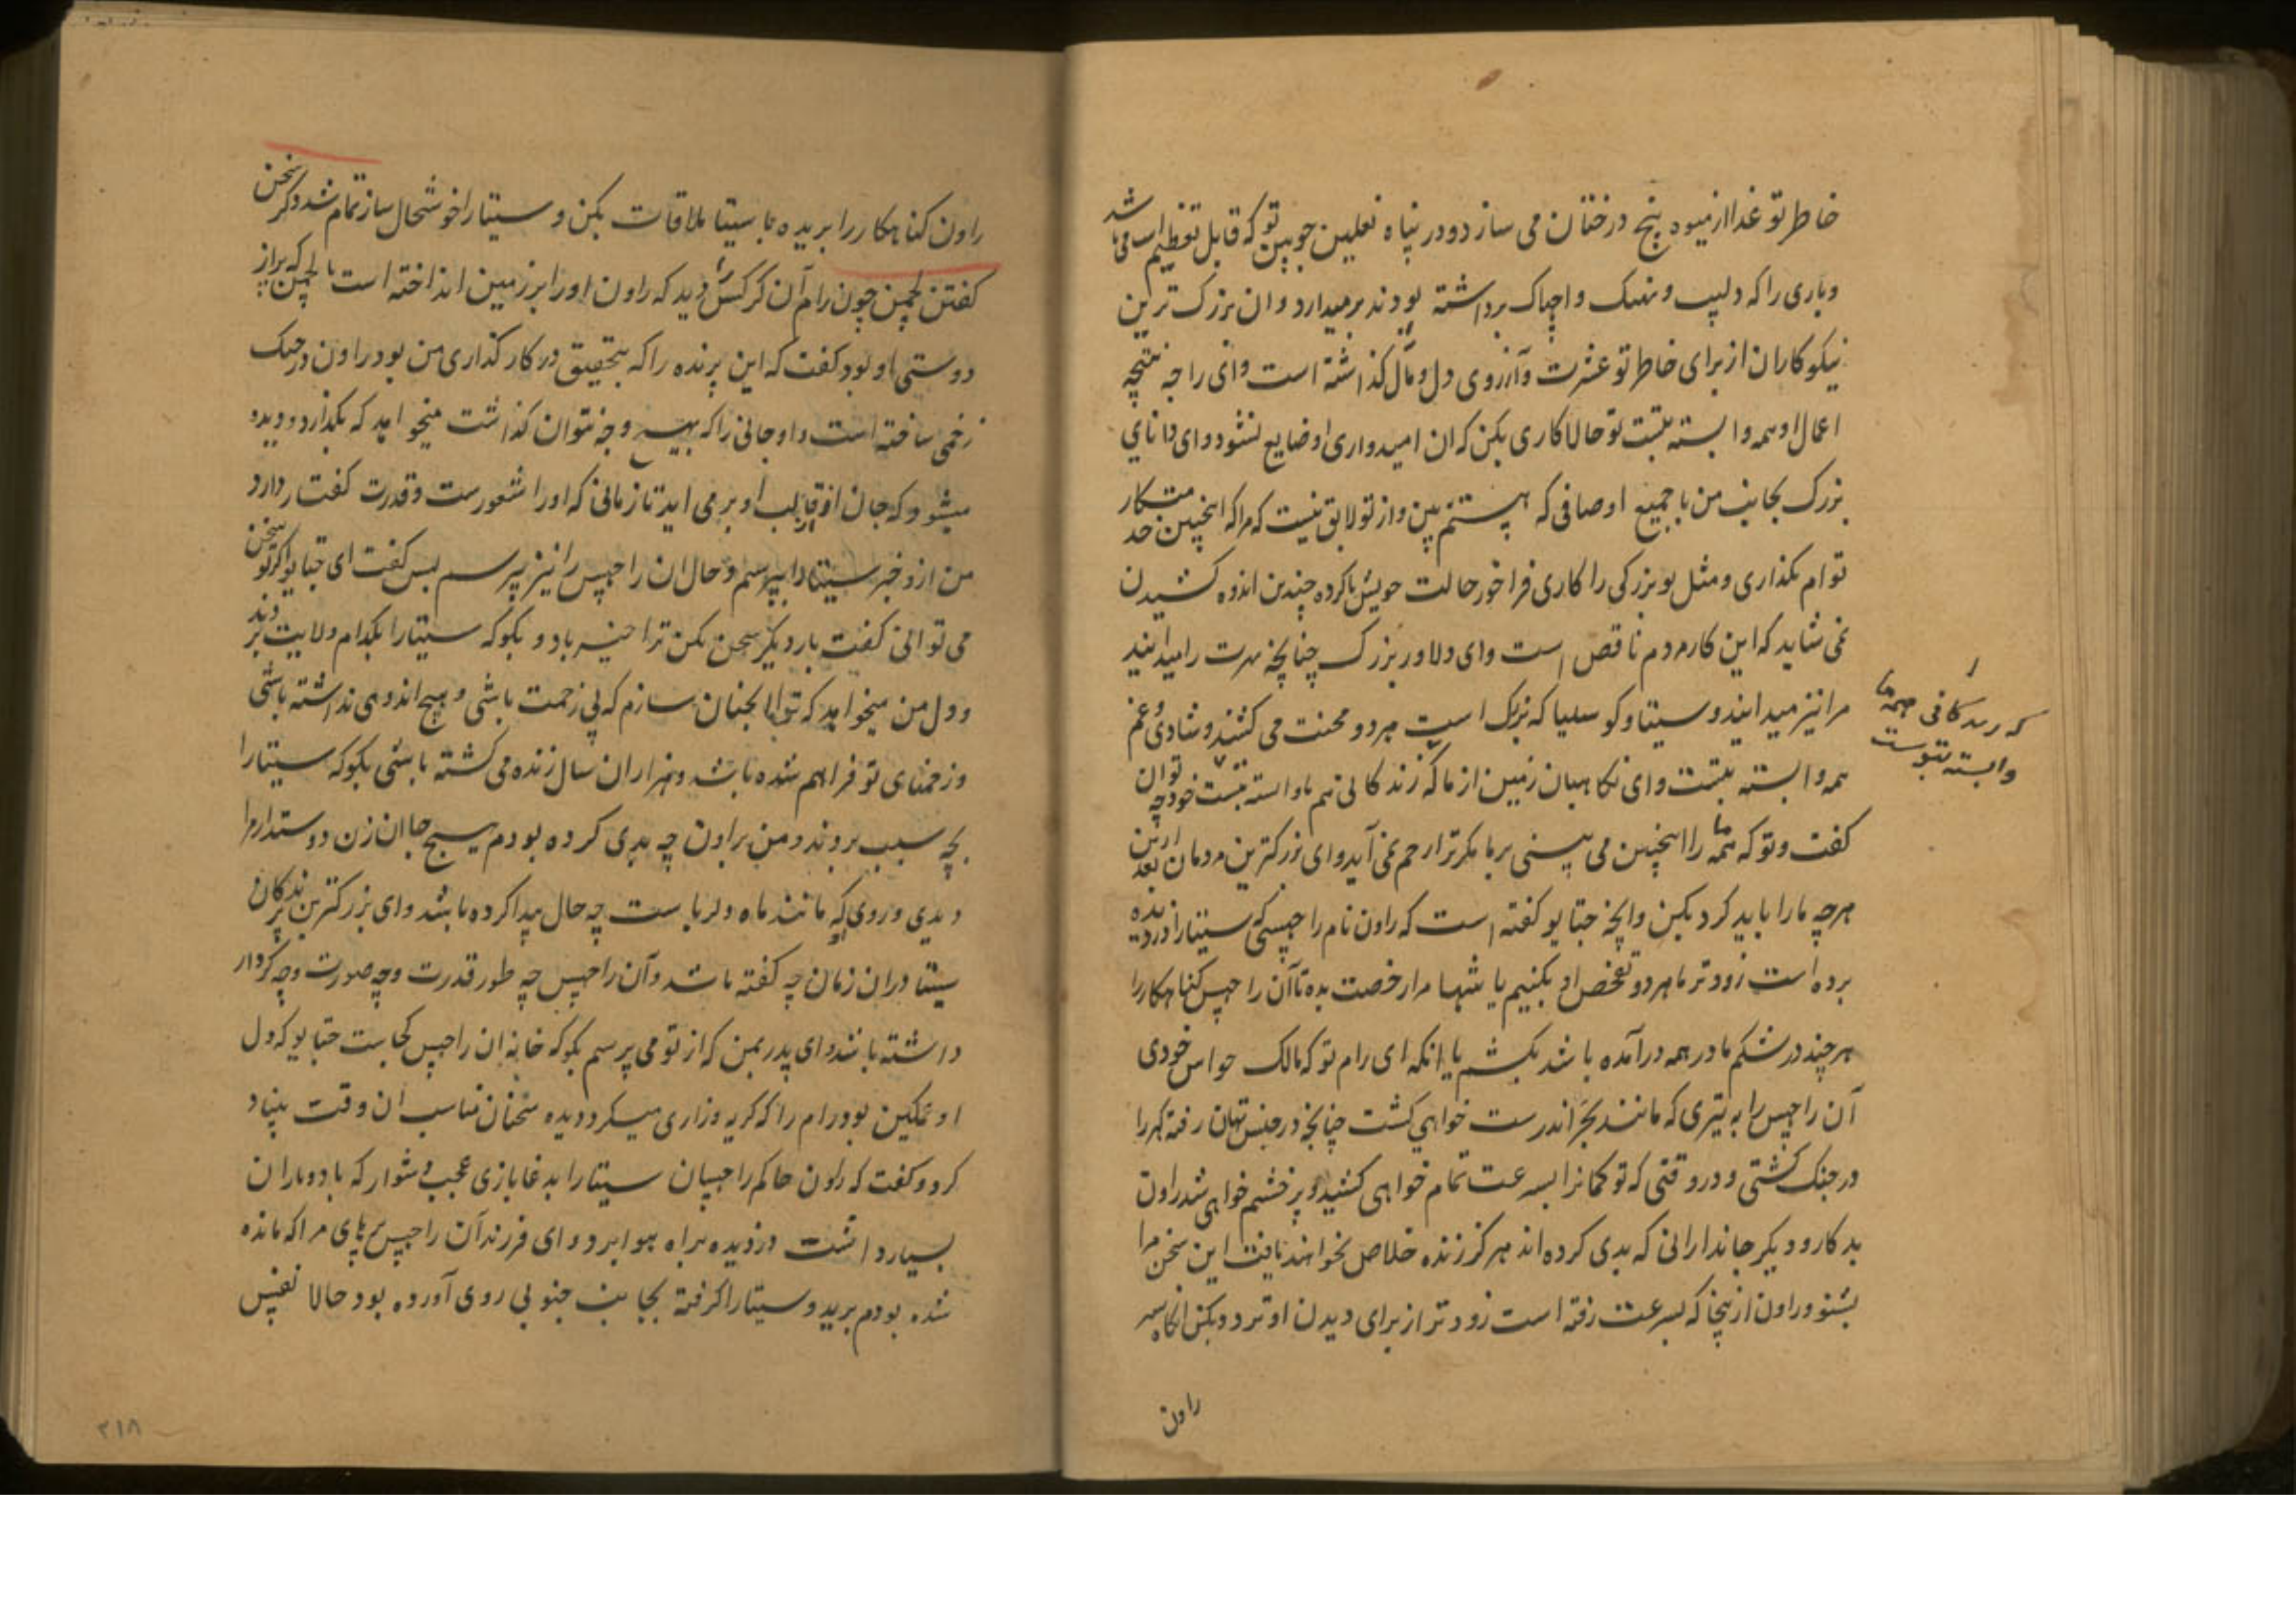 خاطر تو غذا از میوه بیخ درختان می سازد و در پناه نعلین چوبین تو که قابل تعظیم است می باشد
و باری را که دلیپ و اجپاک برداشته بودند برمیدارد و ان بزرک ترین
نیکوکاران از برای خاطر تو عشرت و آرزوی دل و مال کذاشته است و ای راجه نتیجه
اعمال او همه وابسته بتست تو حالا کاری بکن که ان امیدواری او ضایع نشود و ای دانای
بزرک بجانب من با جمیع اوصافی که هستم ببین و از تو لایق نیست که مرا که اینچنین خدمتکار
توام بکذاری و مثل تو بزرکی را کاری فراخور حالت خویش ناکرده چندین اندوه کشیدن
نمی شاید که این کار مردم ناقص است و ای دلاور بزرک چنانچه بهرت را میدانید
مرا نیز میدانید و سیتا و کوسلیا که نزدیک است بمیرد و محنت می کشند و شادی و غم
همه وابسته بتست و ای نکاهبان زمین از ما که زندکانی هم وابسته بتست خود چه توان
کفت و تو که همه ما را اینچنین می بینی بر ما مکر ترا رحم نمی آید و ای بزرکترین مردمان بعد ازین
هرچه ما را باید کرد بکن و آنچه جتایو کفته است که راون نام راچهسی سیتا را دزدیده
برده است زودتر ما هر دو تفحص او بکنیم یا تنها مرا رخصت بده تا آن راچهس کناهکار را
هرچند در شکم مادر هم درآمده باشد بکشم یا انکه ای رام تو که مالک حواس خودی
آن راچهس را به تیری که مانند بجر اندرست خواهی کشت چنانچه در جنس تهان رفته کهر را
در جنک کشتی و در وقتی که تو کمان را بسرعت تمام خواهی کشید و پرخشم خواهی شد راون
بدکار و دیکر جاندارانی که بدی کرده اند هرکز زنده خلاص نخواهند یافت این سخن مرا
بشنو و راون از اینجا که بسرعت رفته است زودتر از برای دیدن او تردد بکن انکاه
راون
که زندکانی همه ما
وابسته بتوست
راون کناهکار را بریده با سیتا ملاقات بکن و سیتا را خوشحال ساز تمام شد ذکر سخن
کفتن لچمن چون رام آن کرکس را دید که راون او را بر زمین انداخته است با لچمن که
دوستی او بود کفت که این پرنده را که بتحقیق در کارکذاری من بود راون در جنک
زخمی ساخته است و او جانی را که بهیچ وجه نتوان کذاشت میخواهد که بکذارد و دیده
میشود که جان از قالب او بر می اید تا زمانی که او را شعورست و قدرت کفتار دارد
من ازو خبر سیتا را بپرسم و حال ان راچهس را نیز بپرسم پس کفت ای جتایو اکر تو سخن
می توانی کفت بار دیکر سخن بکن ترا خیر باد و بکو که سیتا را بکدام ولایت بردند
و دل من میخواهد که ترا انچنان سازم که بی زحمت باشی و هیچ اندوهی نداشته باشی
و زخمهای تو فراهم شده باشد و هزاران سال زنده می کشته باشی بکو که سیتا را
بچه سبب بردند و من براون چه بدی کرده بودم هیچ جا ان زن دوستدار مرا
دیدی و روی که مانند ماه دلرباست چه حال پیدا کرده باشد و ای بزرکترین پرندکان
سیتا دران زمان چه کفته باشد و آن راچهس چه طور قدرت و چه صورت و چه کردار
داشته باشد و ای پدر بمن که از تو می پرسم بکو که خانه ان راچهس کجاست جتایو که دل
او غمکین بود رام را که کریه و زاری میکرد دیده سخنان مناسب ان وقت بنیاد
کرد و کفت که راون حاکم راچهسان سیتا را بدغابازی عجب دشوار که باد و باران
بسیار داشت دزدیده براه هوا برد و ای فرزند آن راچهس پرهای مرا که مانده
شده بودم برید و سیتا را کرفته بجانب جنوبی روی آورده بود حالا نفس
۲۱۸